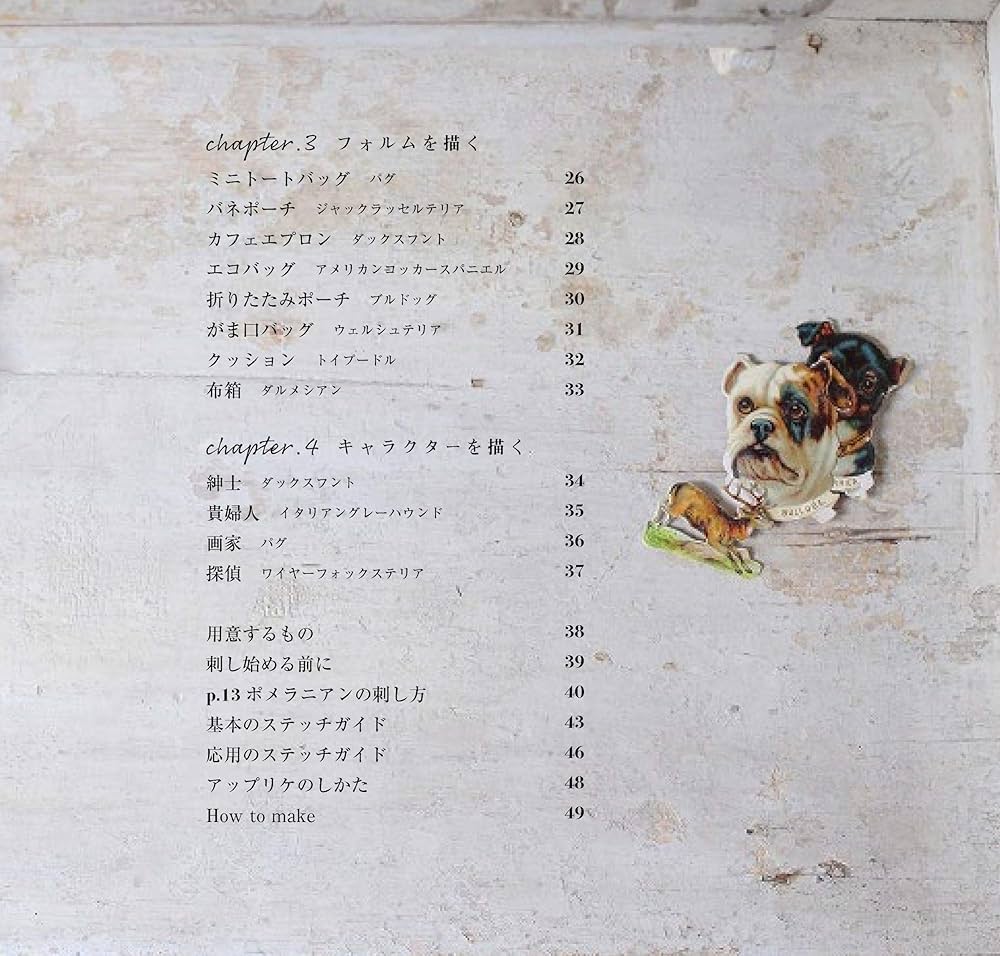 chapter.3 フォルムを描く
ミニトートバッグ パグ 26
バネポーチ ジャックラッセルテリア 27
カフェエプロン ダックスフント 28
エコバッグ アメリカンコッカースパニエル 29
折りたたみポーチ ブルドッグ 30
がま口バッグ ウェルシュテリア 31
クッション トイプードル 32
布箱 ダルメシアン 33
chapter.4 キャラクターを描く
紳士 ダックスフント 34
貴婦人 イタリアングレーハウンド 35
画家 パグ 36
探偵 ワイヤーフォックステリア 37
用意するもの 38
刺し始める前に 39
p.13 ポメラニアンの刺し方 40
基本のステッチガイド 43
応用のステッチガイド 46
アップリケのしかた 48
How to make 49